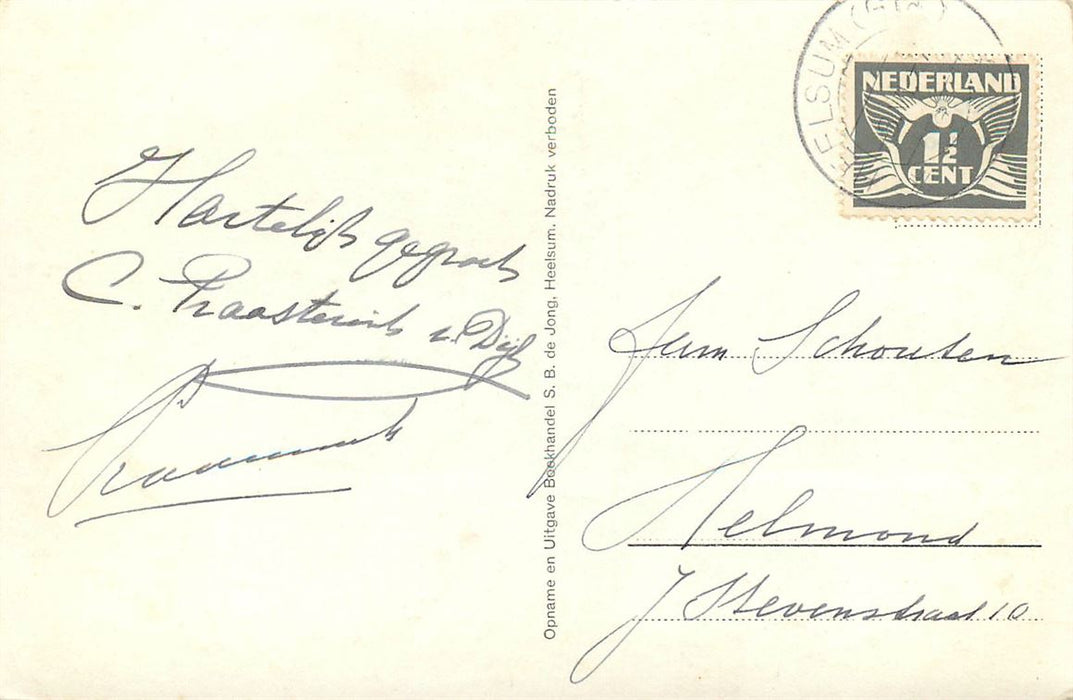 EELSUM (GLD.)
NEDERLAND
1½
CENT
Hartelijk gegroet
C. Praasterink v. Dijk
Opname en Uitgave Boekhandel S. B. de Jong, Heelsum. Nadruk verboden
Fam Schouten
Helmond
J Stevenstraat 10